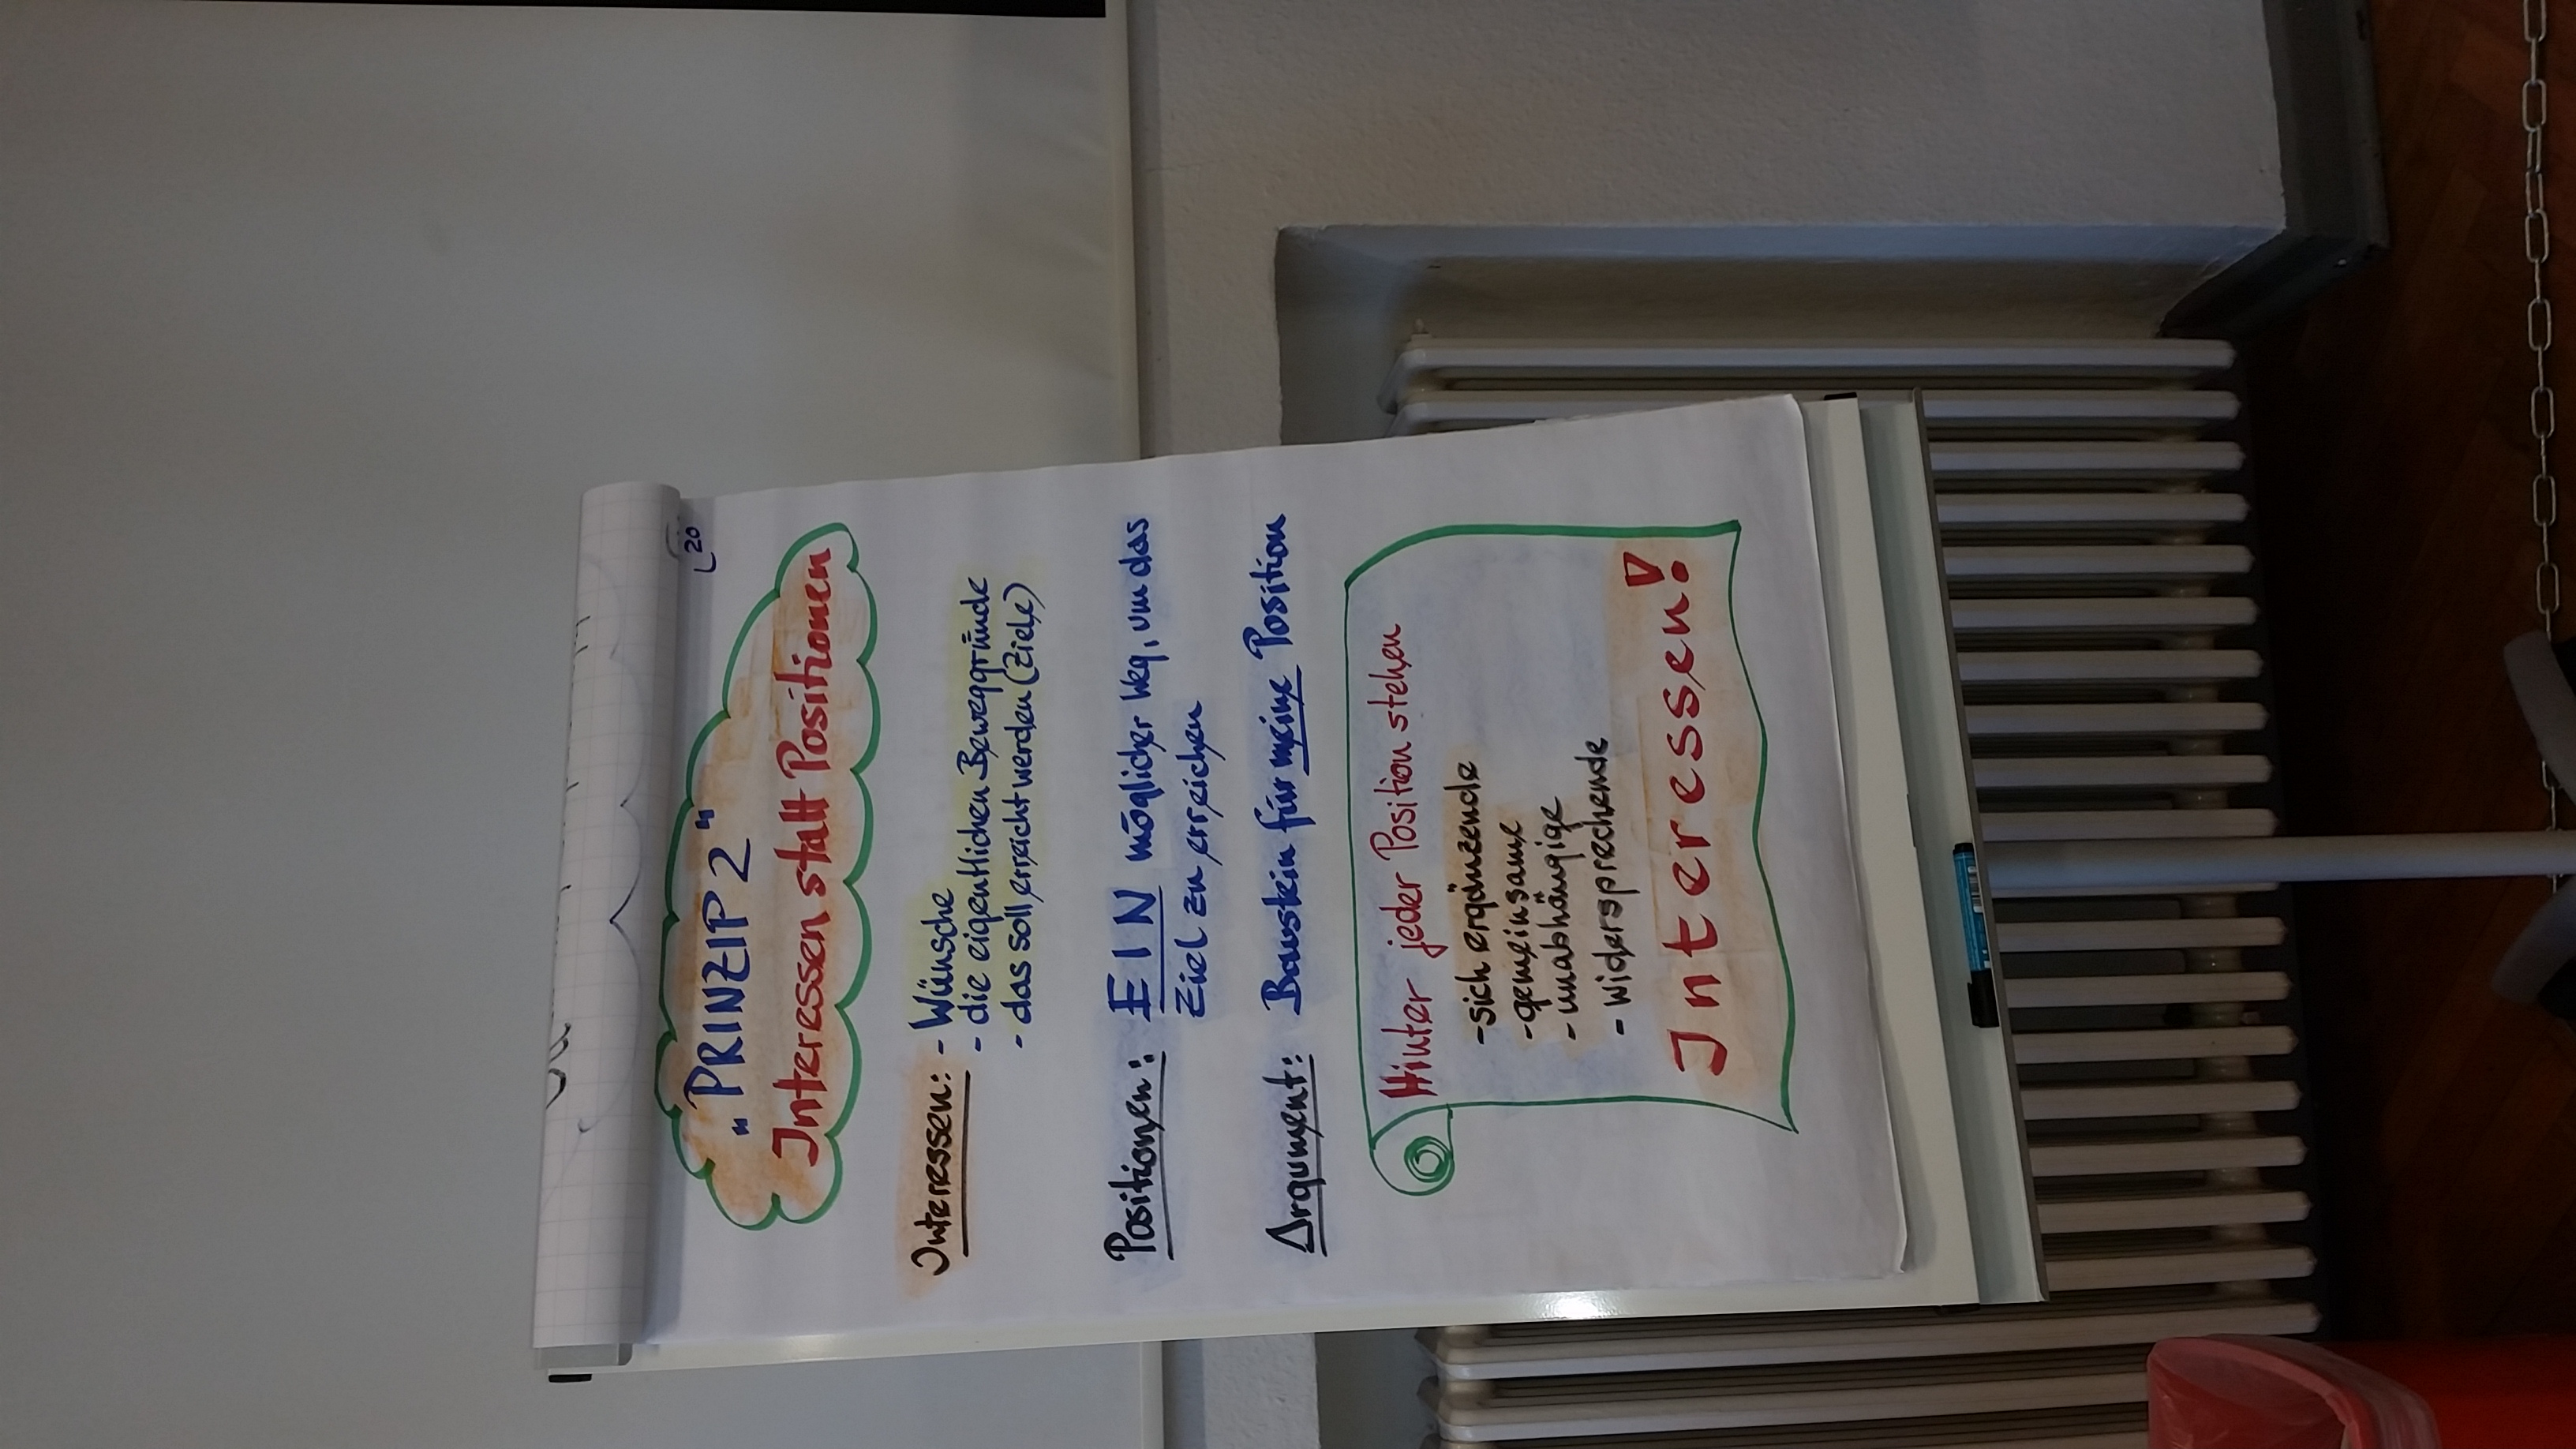 20
„PRINZIP 2"
Interessen statt Positionen
Interessen: - Wünsche
- die eigentlichen Beweggründe
- das soll erreicht werden (Ziele)
Positionen: EIN möglicher Weg, um das
Ziel zu erreichen
Argument: Baustein für meine Position
Hinter jeder Position stehen
- sich ergänzende
- gemeinsame
- unabhängige
- widersprechende
Interessen!